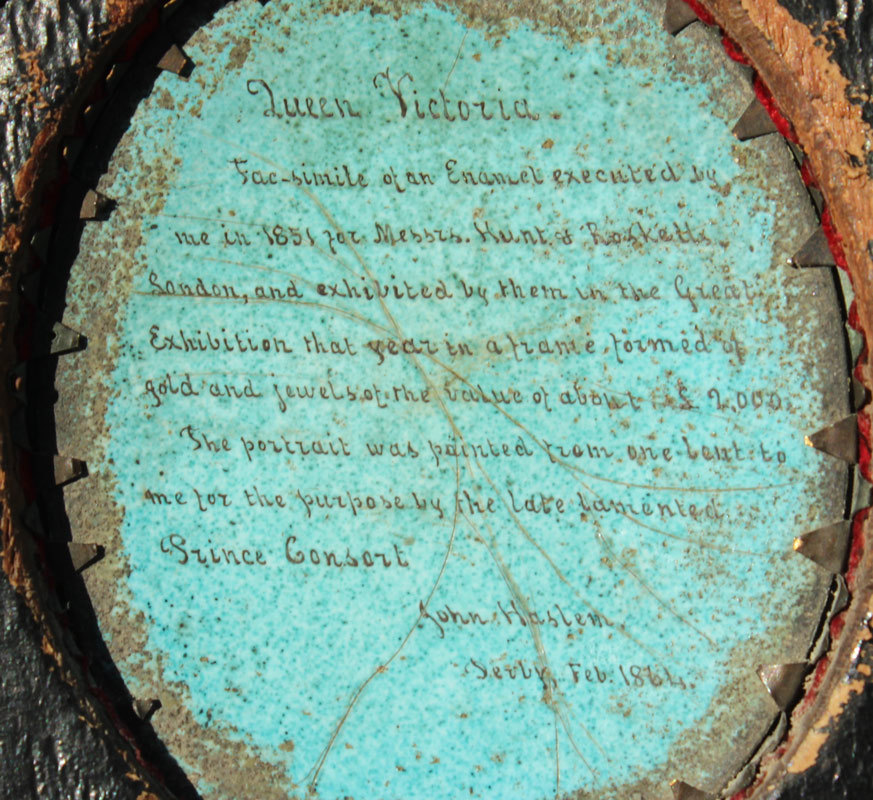 Queen Victoria.
Fac-simile of an Enamel executed by
me in 1851 for Messrs. Hunt & Rosketts
London, and exhibited by them in the Great
Exhibition that year in a frame formed of
gold and jewels of the value of about £ 2,000.
The portrait was painted from one lent to
me for the purpose by the late lamented
Prince Consort
John Haslem.
Derby, Feb. 1864.